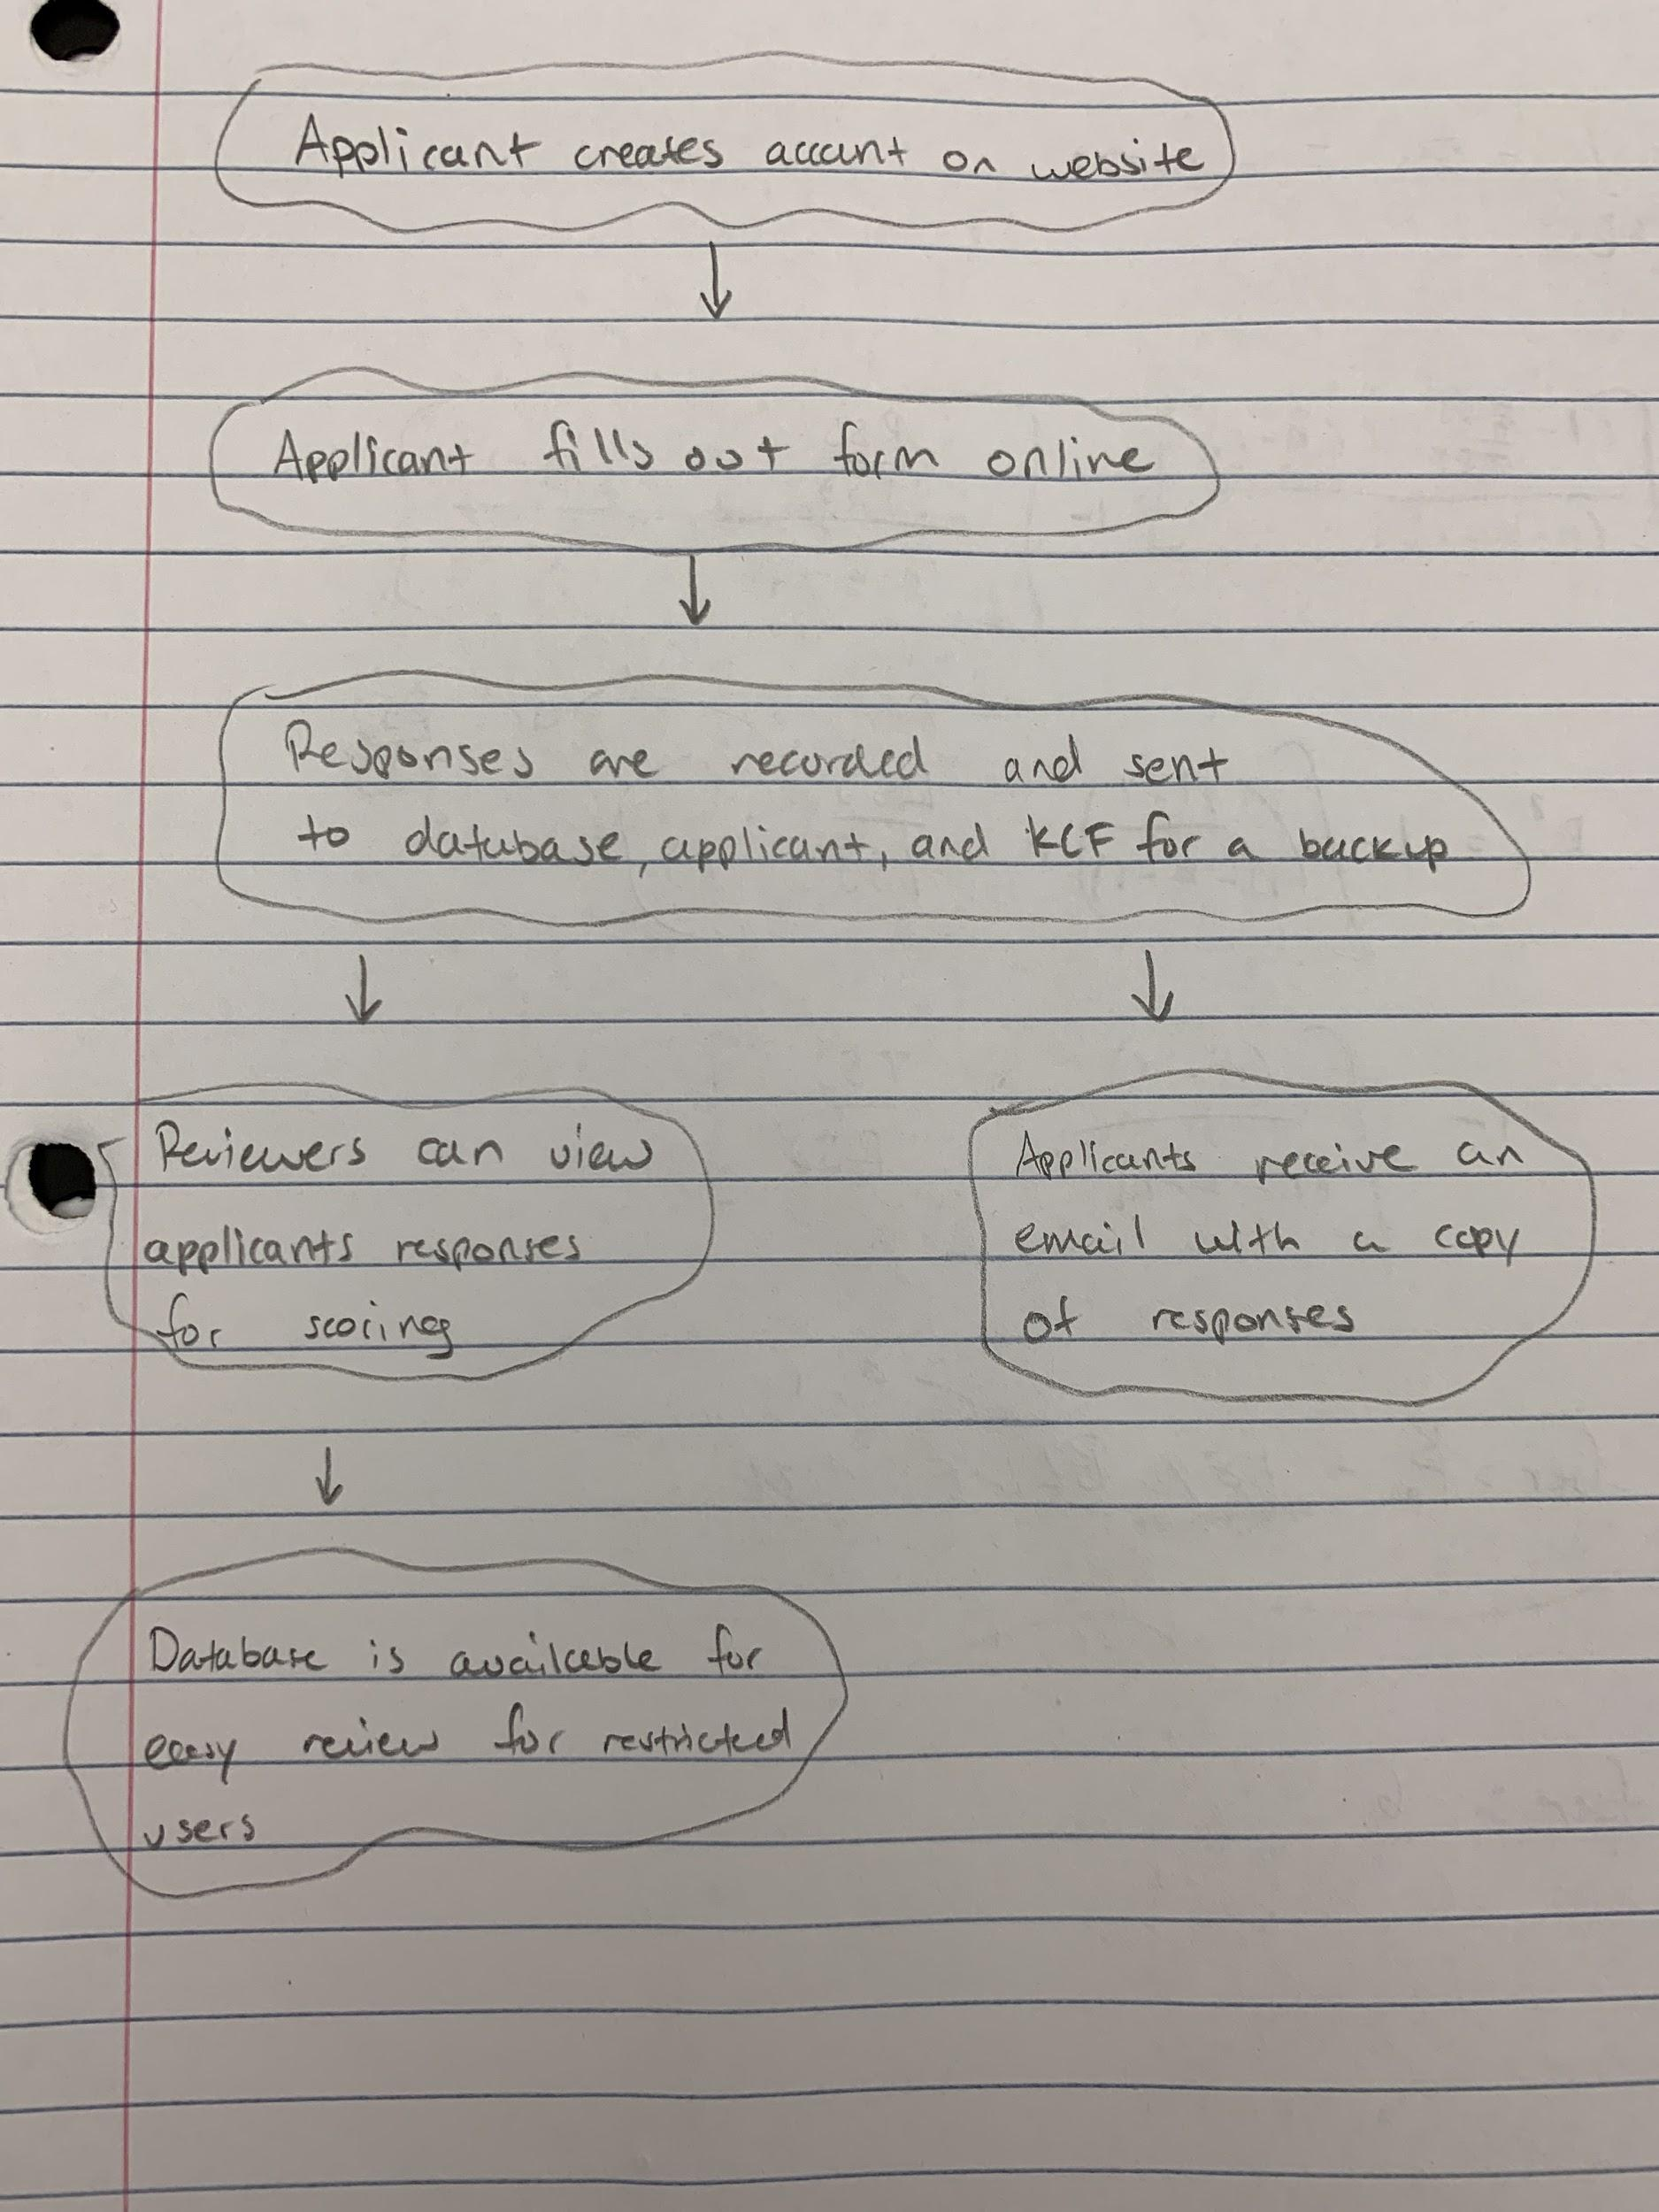 Applicant creates account on website
Applicant fills out form online
Responses are recorded and sent
to database, applicant, and KCF for a backup
Reviewers can view
applicants responses
for scoring
Applicants receive an
email with a copy
of responses
Database is available for
easy review for restricted
users